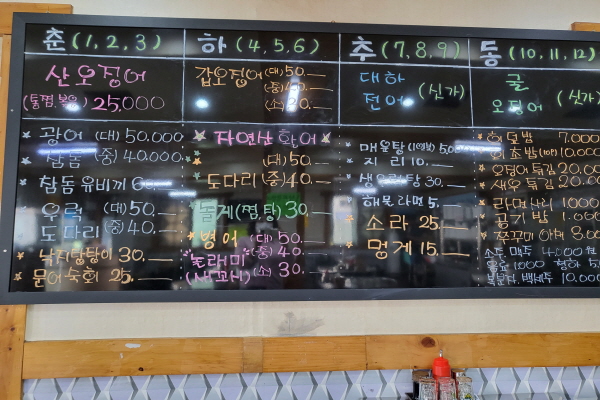 춘 (1, 2, 3)
산오징어
(통찜, 볶음) 25,000
* 광어 (대) 50.000
* 참돔 (중) 40.000
* 참돔 유비끼 60.―
우럭 (대) 50.―
도다리 (중) 40.―
* 낙지탕탕이 30.―
* 문어숙회 25.―
하 (4, 5, 6)
갑오징어 (대) 50.―
(중) 40.―
(소) 20.―
자연산 활어
(대) 50.―
* 도다리 (중) 40.―
* 돌게 (찜, 탕) 30.―
* 병어 (대) 50.―
*노래미 (중) 40.―
(사꼬시) (소) 30.―
추 (7, 8, 9)
대하
전어 (싯가)
* 매운탕 5,000
* 지리 10.―
* 생우럭탕 30.―
* 해물라면 5.
* 소라 25.―
* 멍게 15.―
동 (10, 11, 12)
굴
오징어 (싯가)
* 회덮밥 7.000
* 회초밥 10.000
* 오징어튀김 20.00
* 새우튀김 20.00
* 라면사리 1000
* 공기밥 1.000
* 쭈꾸미 야채 8.00
소주, 맥주 4.000
음료 1000 청하 5.0
복분자, 백세주 10.000